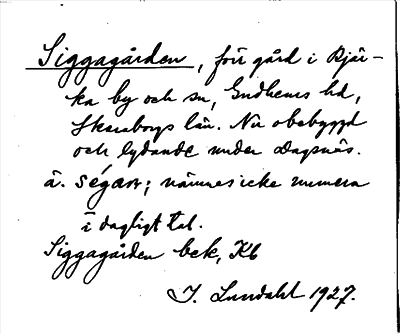 Siggagården, förr gård i Bjär-
ka by och sn, Gudhems hd,
Skaraborgs län. Nu obebyggd
och lydande under Dagsnäs.
ä.ségaṛṇ; nämnes icke numera
i dagligt tal.
Siggagården bck, Kb
I. Lundahl 1927.